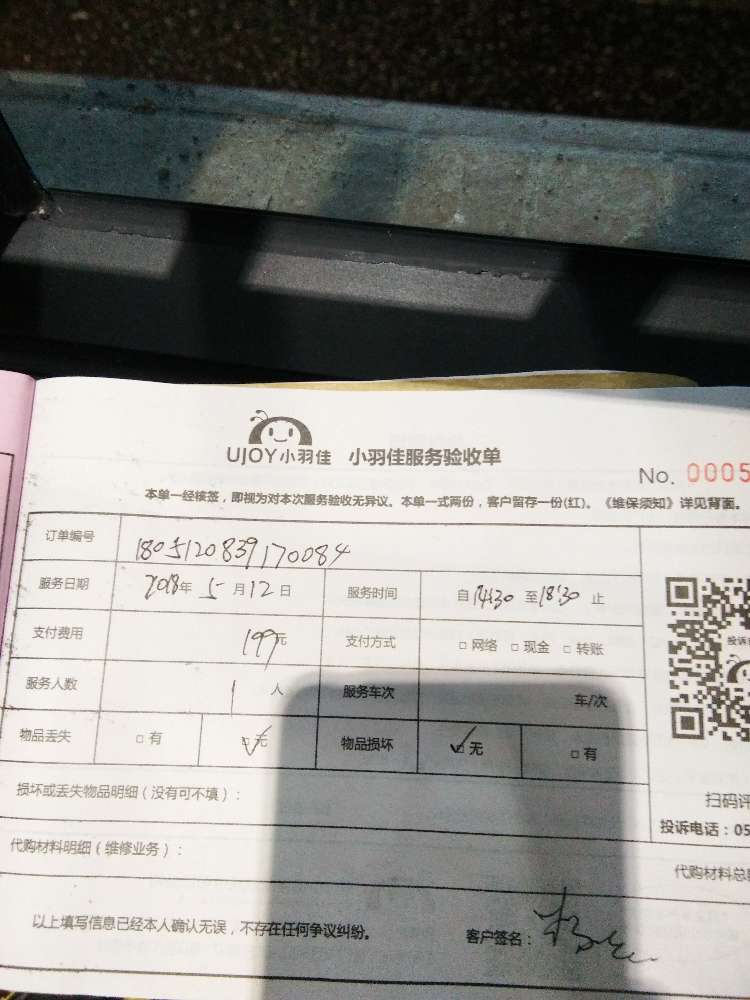 UJOY小羽佳 小羽佳服务验收单
No. 0005
本单一经核签，即视为对本次服务验收无异议。本单一式两份，客户留存一份(红)。《维保须知》详见背面。
订单编号 1805120839170084
服务日期 2018年 5 月 12 日 服务时间 自 14:30 至 18:30 止
支付费用 199元 支付方式 □ 网络 □ 现金 □ 转账
投诉
服务人数 1 人 服务车次 车/次
物品丢失 □ 有 ☑ 无 物品损坏 ☑ 无 □ 有
损坏或丢失物品明细（没有可不填）：
扫码评
投诉电话：05
代购材料明细（维修业务）：
代购材料总
以上填写信息已经本人确认无误，不存在任何争议纠纷。 客户签名：